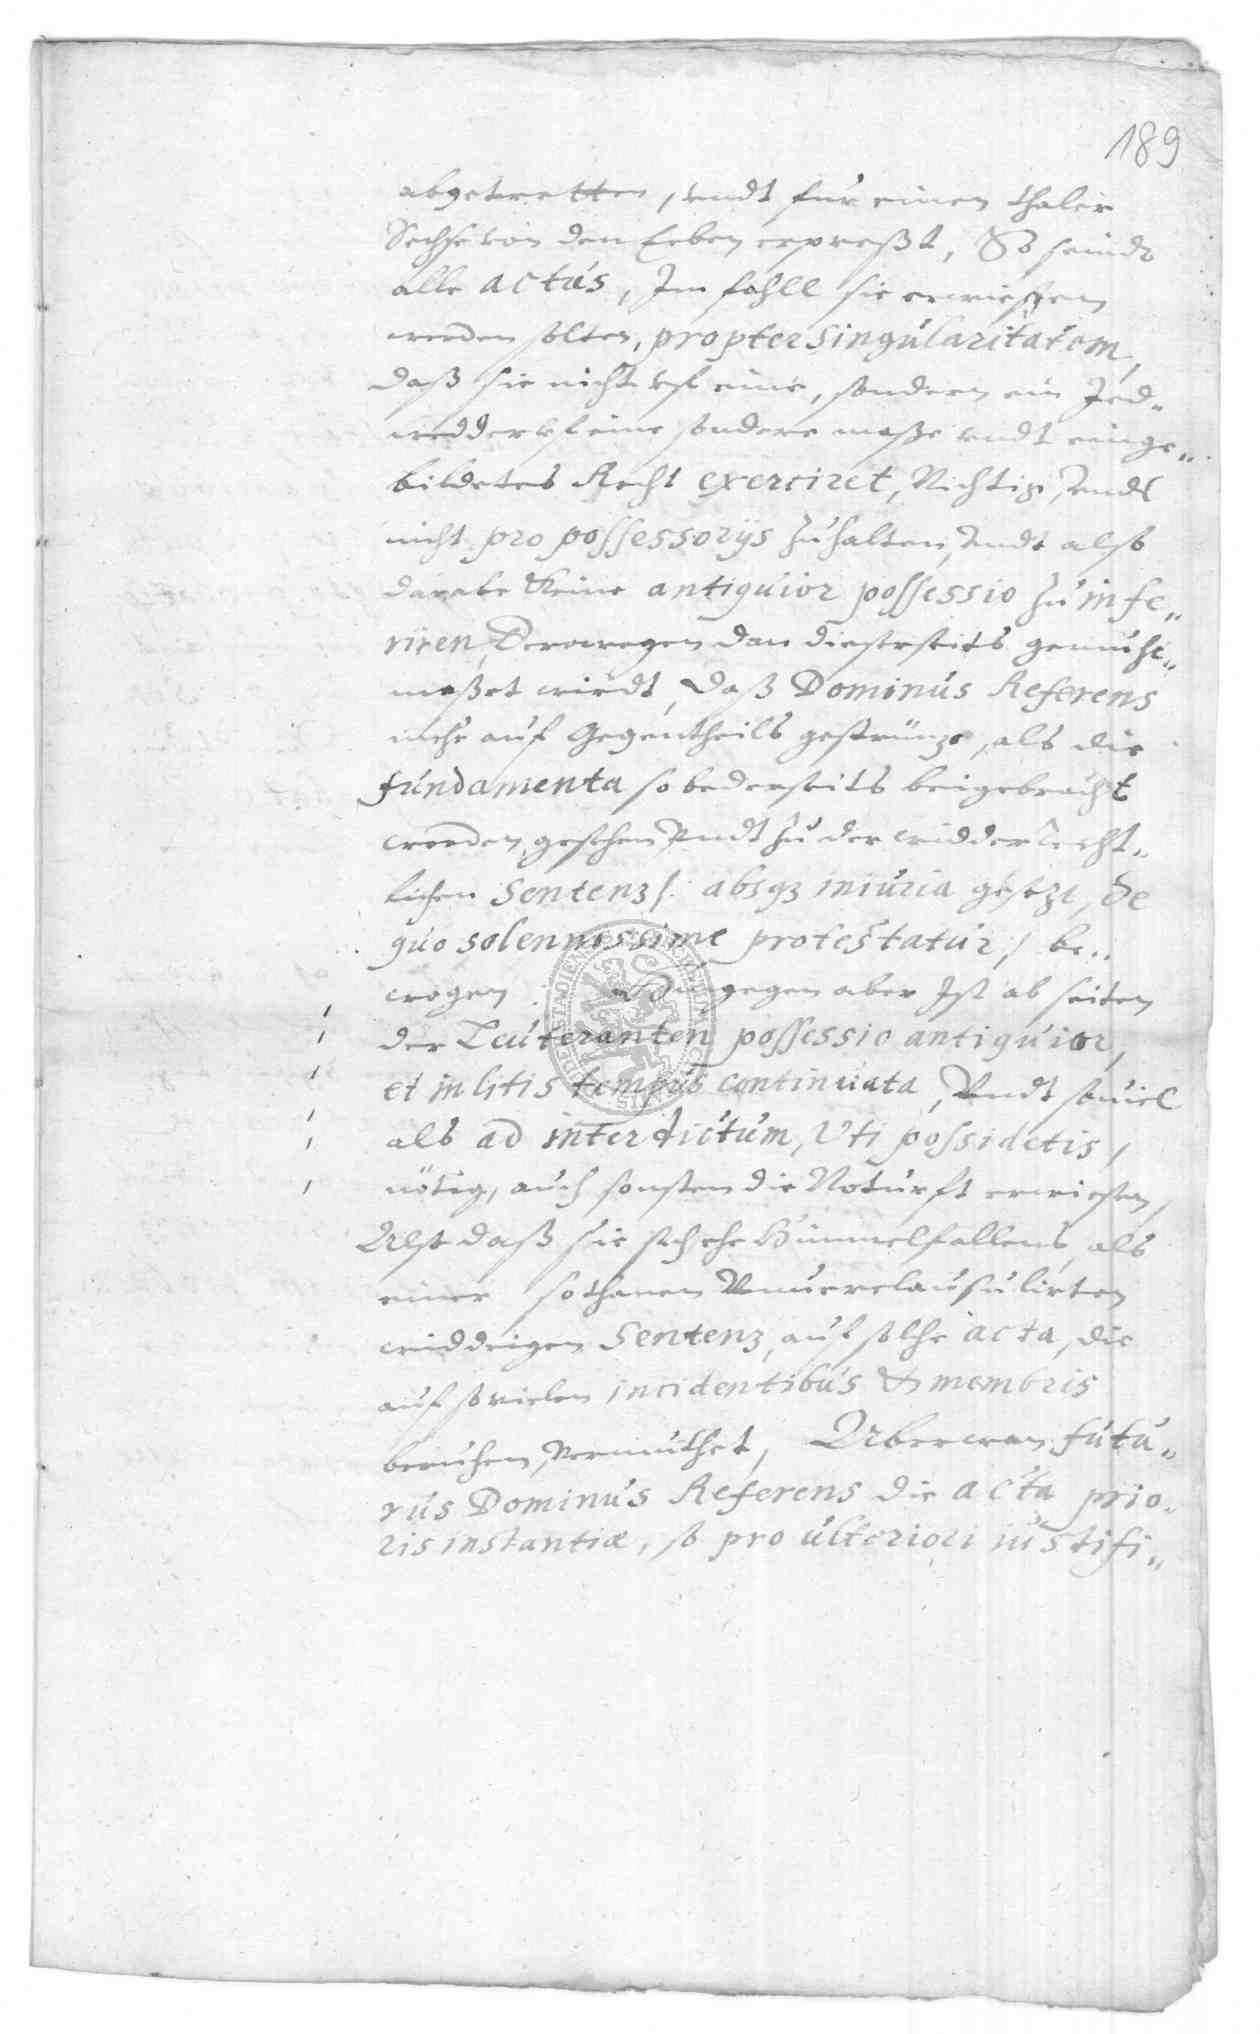 189
abgetretten, vndt fur einen thaler
Sechse von den Erben erpreßt, So seindt
alle actus, Im fahll sie erwiesen
werden solten, propter singularitatem,
daß sie nicht vf eine, sondern ein Jed-
wedder vf eine sondere maße vndt einge-
bildetes Recht exerciret, Nichtig, vndt
nicht pro possessorijs zuhalten, vndt also
darabe Keine antiquior possessio zu infe-
riren, Derowegen dan dieserseits gemuht-
maßet wirdt, daß Dominus Referens
mehr auf Gegentheils, als die
fundamenta so bederseits beigebracht
worden, gesehen Vndt zu der widderrecht-
lichen Sentenz /: absq3 iniuria gesetzt, de
quo solennissime protestatur :/ be-
wogen. Hingegen aber Ist ab seiten
der Leuteranten possessio antiquior,
et in litis tempus continuata, Vndt souiel
als ad interdictum, Vti possidetis,
nötig, auch sonsten die Noturft erwiesen,
Also daß sie sich ehe Himmelfallens, als
einer sothanen Vnuerclausulirten
widdrigen Sentenz, auf solche acta, die
auf so vielen incidentibus & membris
beruhen, Vermuthet, Aber wan futu-
rus Dominus Referens die acta prio-
ris instantiæ, so pro ulteriori iustifi-